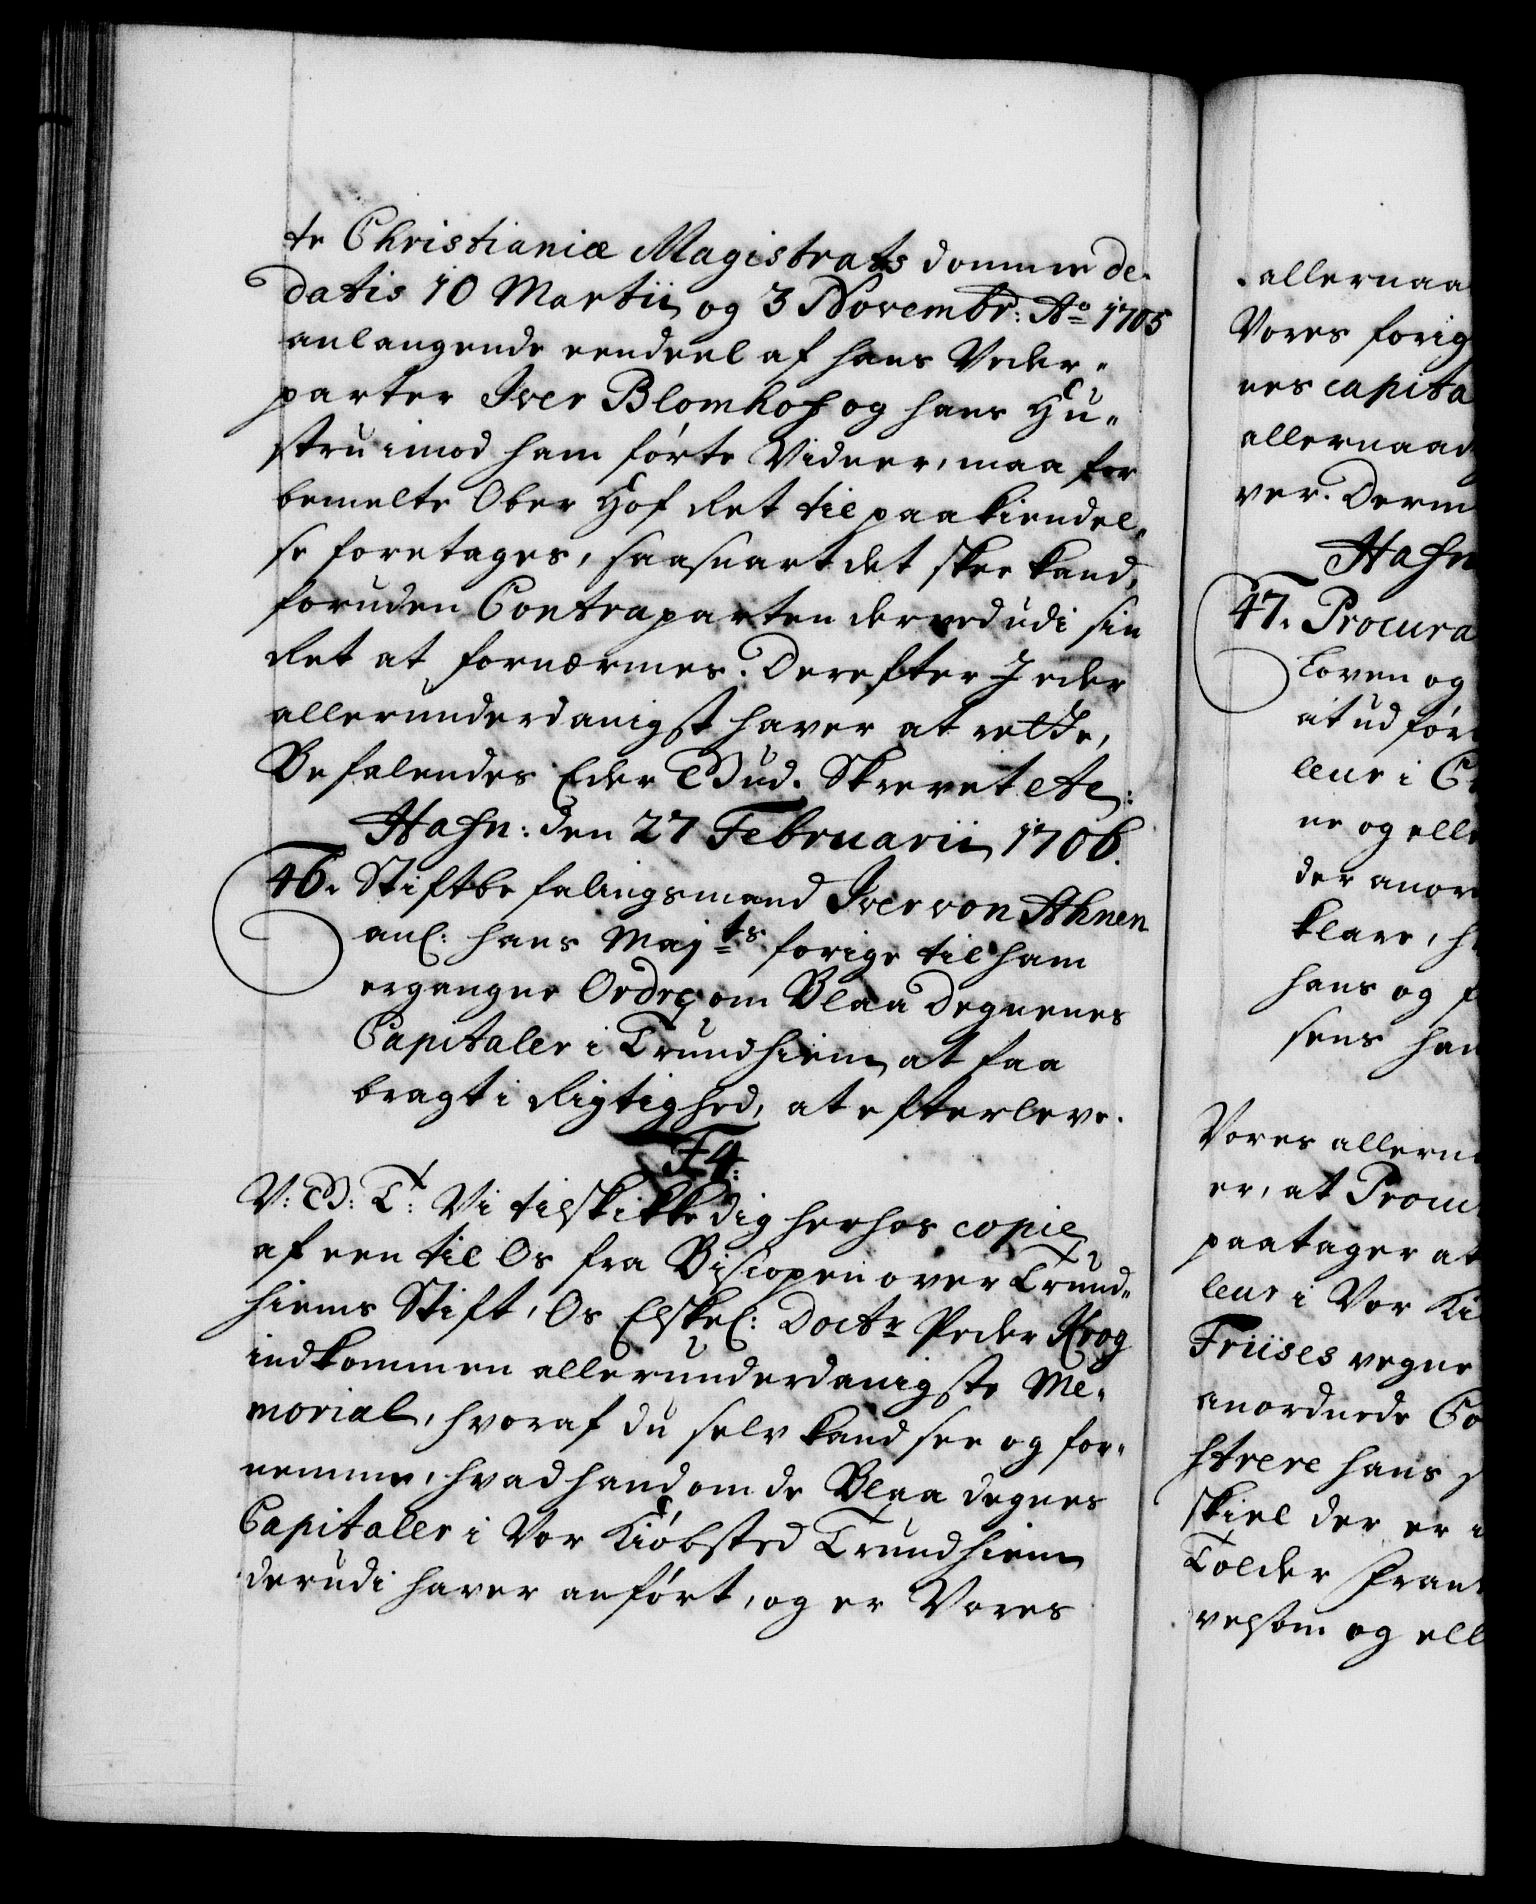 te Christianiæ Magistrats domme de
datis 10 Martii og 3 Novembr: Ao 1705
anlangende eendeel af hans Veder-
parter Iver Blomhof og hans Hu-
stru imod ham førte Vidner, maa for
bemelte Ober Hof Ret til paakiendel-
se foretages, saasnart det skee kand,
foruden Contraparten derved udi sin
Ret at fornærmes. Derefter I eder
allerunderdanigst haver at rette,
Befalendes Eder Gud. Skrevet etc:
Hafn: den 27 Februarii 1706.
46. Stiftbefalingsmand Iver von Ahnen
anl: hans Majts forige til ham
ergangne Ordre om Blaa Degnenes
Capitaler i Trundhiem at faa
bragt i Rigtighed, at efterleve.
F4:
V: G: T: Vi tilskikke dig herhos copie
af een til Os fra Biscopen over Trund-
hiems Stift, Os Elskel: Doctr Peder Krog
indkommen allerunderdanigste Me-
morial, hvoraf du selv kand see og for-
nemme, hvad hand om de Blaa degnes
Capitaler i Vor Kiøbsted Trundhiem
derudi haver anført, og er Vores
allernaa
Vores forig
nes capita
allernaad
ver. Derm
Hafn
47. Procura
Loven og
at udfør
leur i
ne og elle
der anor
klare,
hans og
sens han
Vores allern
er, at Procu
paatager at
leur i Vor Ki
Friises vegne
anordnede Co
strere hans
skiel der er
Tolder Fran
velsom og ell